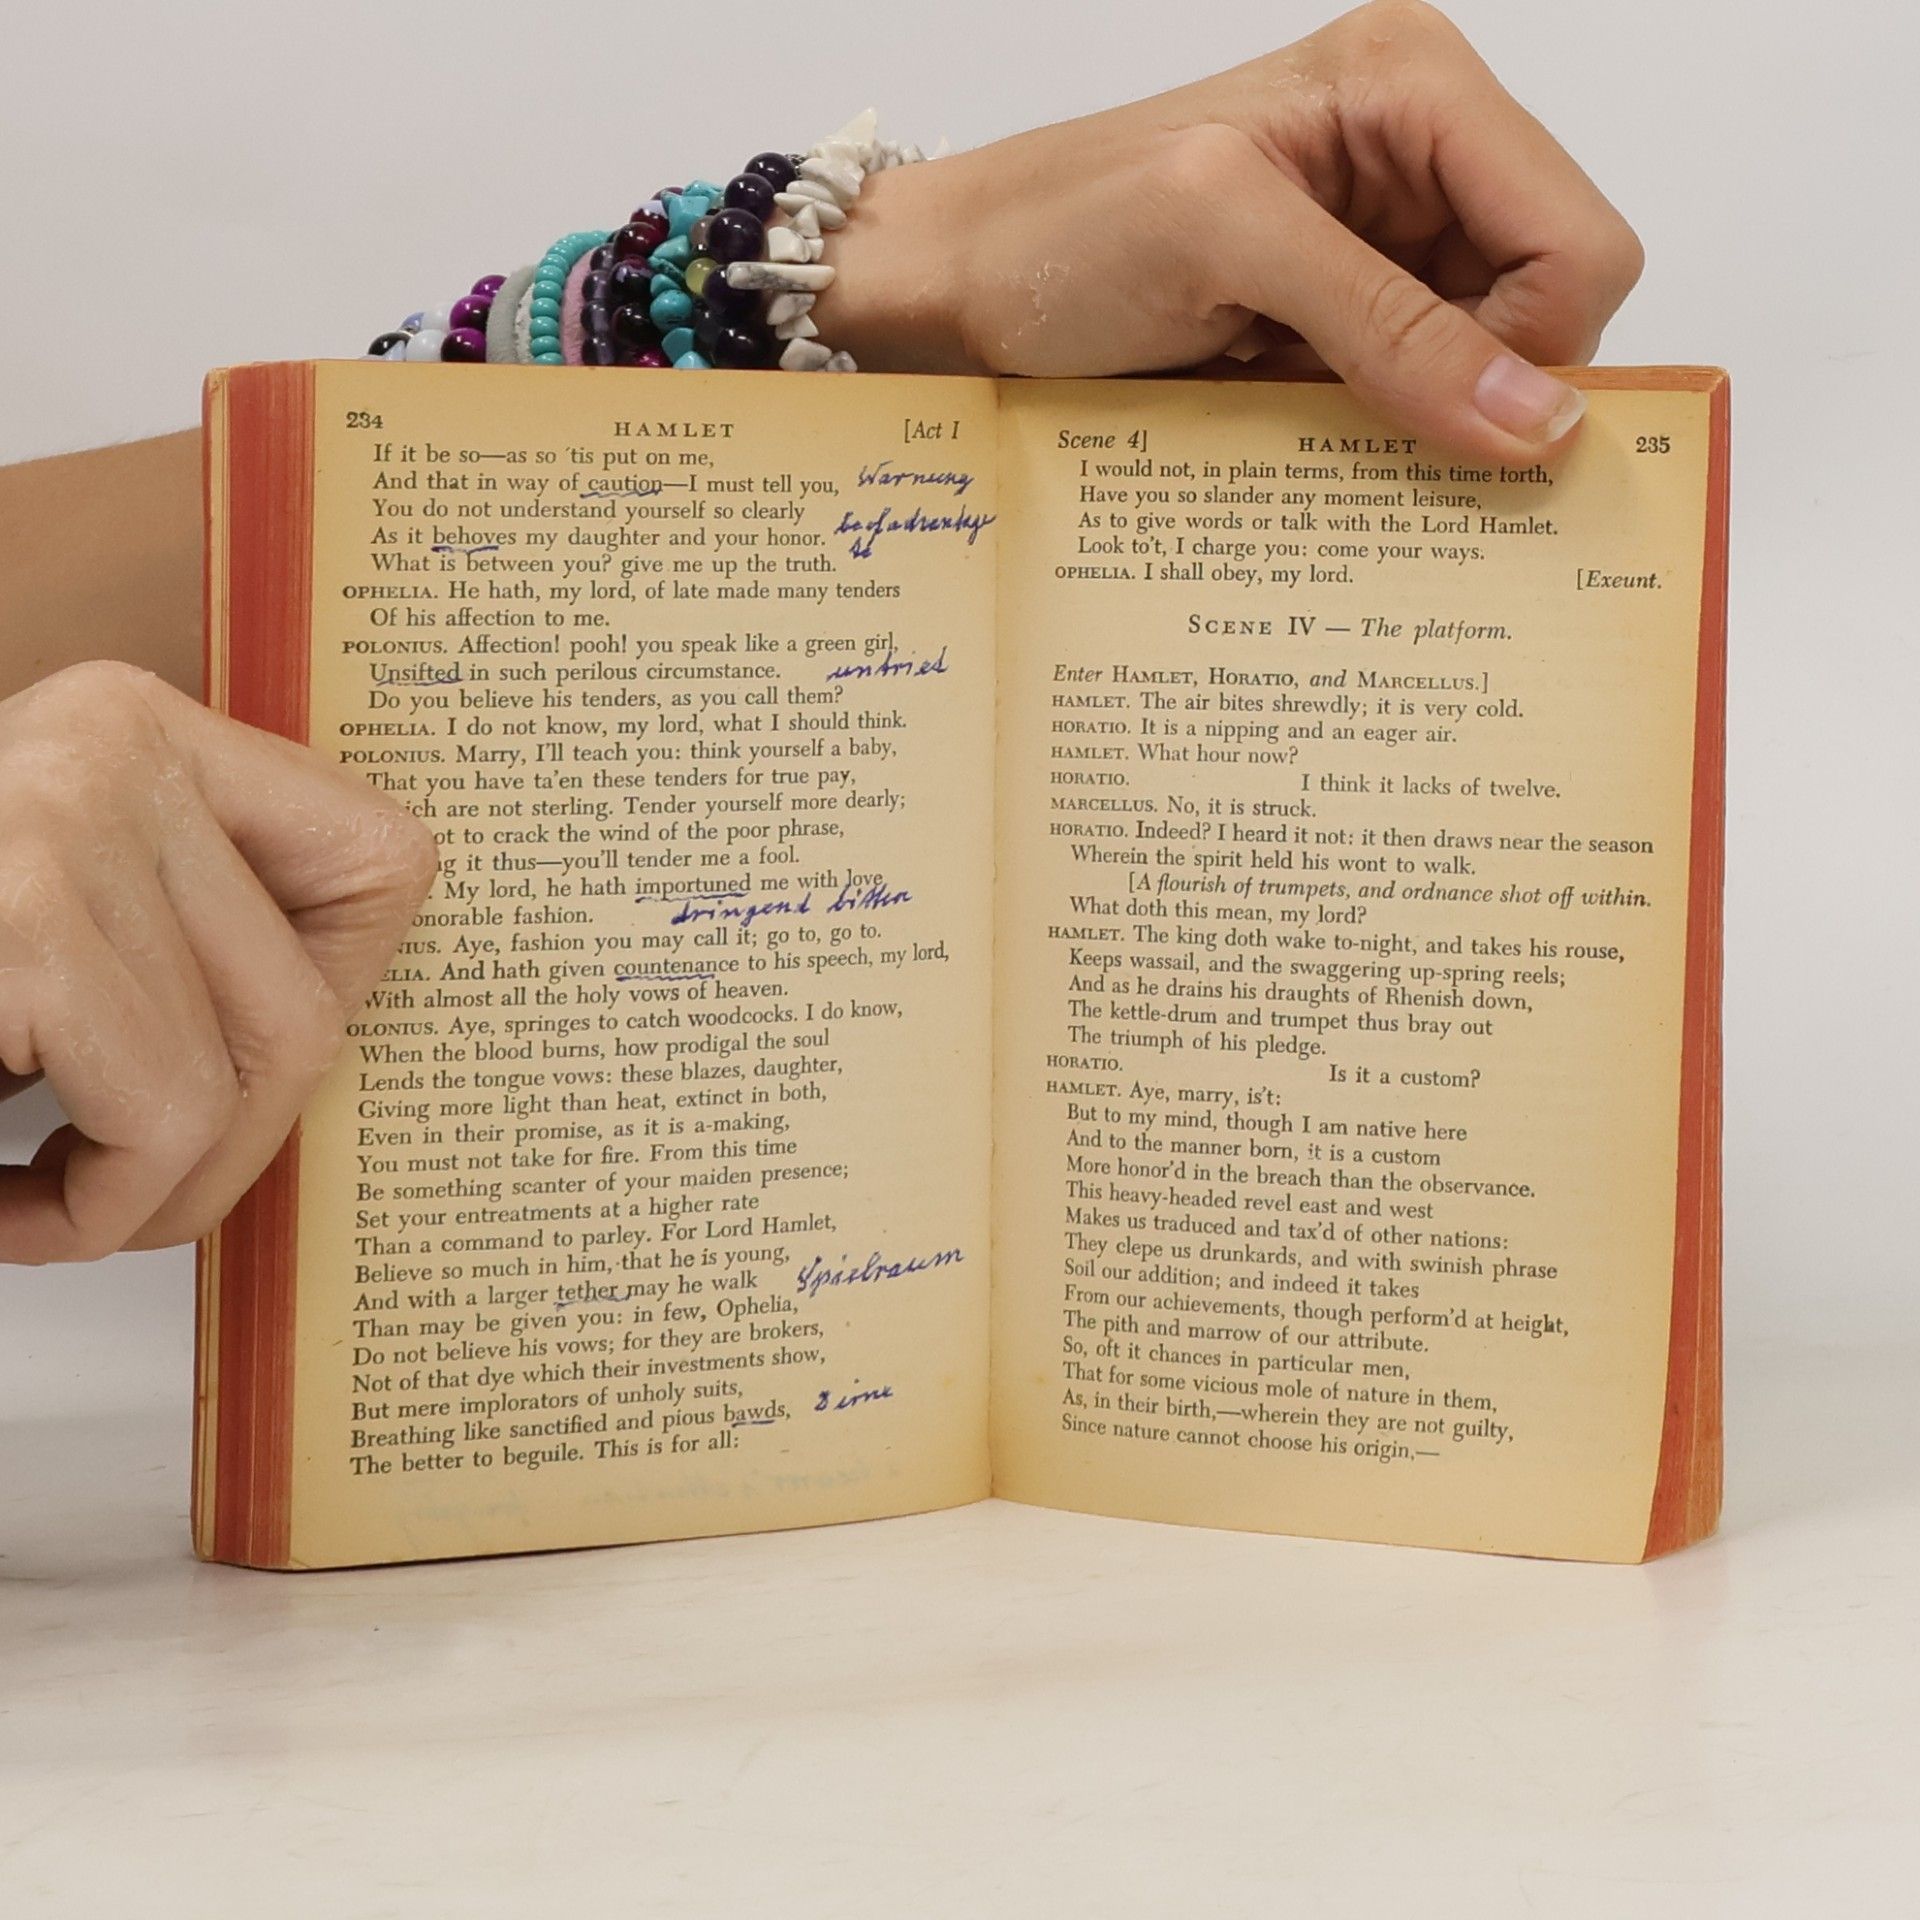 234 HAMLET [Act I
If it be so—as so 'tis put on me,
And that in way of caution—I must tell you, Warnung
You do not understand yourself so clearly
As it behoves my daughter and your honor. be of advantage
to
What is between you? give me up the truth.
OPHELIA. He hath, my lord, of late made many tenders
Of his affection to me.
POLONIUS. Affection! pooh! you speak like a green girl,
Unsifted in such perilous circumstance. untried
Do you believe his tenders, as you call them?
OPHELIA. I do not know, my lord, what I should think.
POLONIUS. Marry, I'll teach you: think yourself a baby,
That you have ta'en these tenders for true pay,
ich are not sterling. Tender yourself more dearly;
ot to crack the wind of the poor phrase,
g it thus—you'll tender me a fool.
. My lord, he hath importuned me with love
onorable fashion. dringend bitten
NIUS. Aye, fashion you may call it; go to, go to.
ELIA. And hath given countenance to his speech, my lord,
With almost all the holy vows of heaven.
OLONIUS. Aye, springes to catch woodcocks. I do know,
When the blood burns, how prodigal the soul
Lends the tongue vows: these blazes, daughter,
Giving more light than heat, extinct in both,
Even in their promise, as it is a-making,
You must not take for fire. From this time
Be something scanter of your maiden presence;
Set your entreatments at a higher rate
Than a command to parley. For Lord Hamlet,
Believe so much in him, that he is young,
And with a larger tether may he walk Spielraum
Than may be given you: in few, Ophelia,
Do not believe his vows; for they are brokers,
Not of that dye which their investments show,
But mere implorators of unholy suits,
Breathing like sanctified and pious bawds, Dirne
The better to beguile. This is for all:
Scene 4] HAMLET 235
I would not, in plain terms, from this time forth,
Have you so slander any moment leisure,
As to give words or talk with the Lord Hamlet.
Look to't, I charge you: come your ways.
OPHELIA. I shall obey, my lord. [Exeunt.
SCENE IV — The platform.
Enter HAMLET, HORATIO, and MARCELLUS.]
HAMLET. The air bites shrewdly; it is very cold.
HORATIO. It is a nipping and an eager air.
HAMLET. What hour now?
HORATIO. I think it lacks of twelve.
MARCELLUS. No, it is struck.
HORATIO. Indeed? I heard it not: it then draws near the season
Wherein the spirit held his wont to walk.
[A flourish of trumpets, and ordnance shot off within.
What doth this mean, my lord?
HAMLET. The king doth wake to-night, and takes his rouse,
Keeps wassail, and the swaggering up-spring reels;
And as he drains his draughts of Rhenish down,
The kettle-drum and trumpet thus bray out
The triumph of his pledge.
HORATIO. Is it a custom?
HAMLET. Aye, marry, is't:
But to my mind, though I am native here
And to the manner born, it is a custom
More honor'd in the breach than the observance.
This heavy-headed revel east and west
Makes us traduced and tax'd of other nations:
They clepe us drunkards, and with swinish phrase
Soil our addition; and indeed it takes
From our achievements, though perform'd at height,
The pith and marrow of our attribute.
So, oft it chances in particular men,
That for some vicious mole of nature in them,
As, in their birth,—wherein they are not guilty,
Since nature cannot choose his origin,—